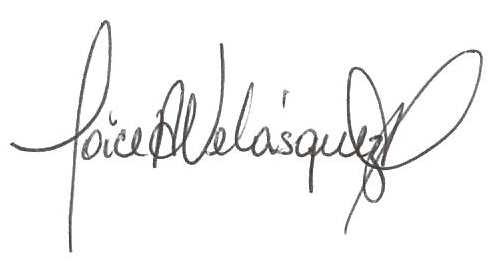 Joice Velásquez